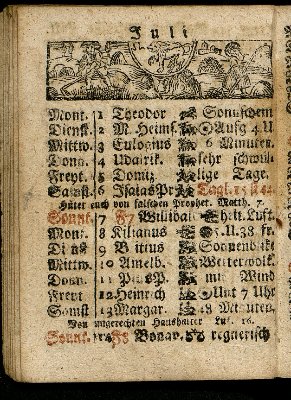 Juli
Mont. 1 Theodor Sonnschein
Dienst. 2 M. Heims. Aufg 4 U.
Mittw. 3 Eulogius 6 Minuten.
Don. 4 Udalrik. sehr schwül
Freyt. 5 Domiz. lige Tage.
Samst. 6 Isaias Pr. Tagl. 15
Hütet euch von falschen Prophet. Matth. 7.
Sonnt. 7 F7 Wilibald Luft.
Mont. 8 Kilianus 5 U. 38. fr.
9 Sonnendike
Mittw. 10 Amelb. Wetterwolk.
Don. 11 Pius P. mit Wind
Freyt 12 Heinrich Unt 7 Uhr
Samst 13 Margar. 48 Minuten.
Von ungerechten Haushalter Luc. 16.
Sonnt. 14 F8 Bonav. regnerisch